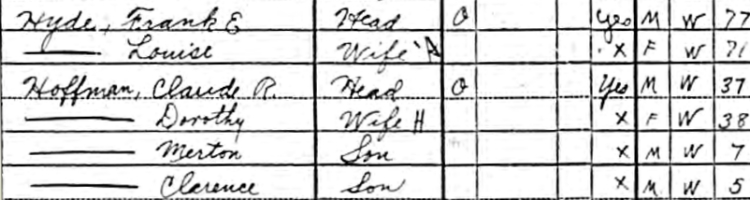 Hyde, Frank E Head O Yes M W 77
—— Louise Wife H X F W 71
Hoffman, Claude R. Head O Yes M W 37
—— Dorothy Wife H X F W 38
—— Merton Son X M W 7
—— Clarence Son X M W 5